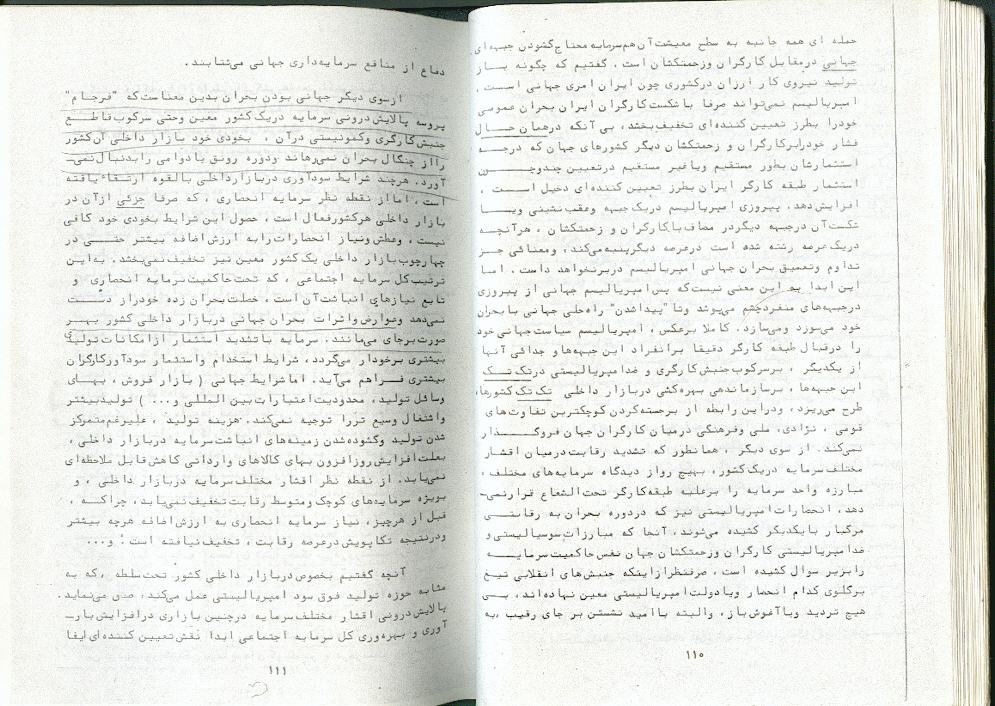 حمله ای همه جانبه به سطح معیشت آن هم سرمایه محتاج گشودن جبهه ای
جهانی درمقابل کارگران وزحمتکشان است. گفتیم که چگونه باز
تولید نیروی کار ارزان درکشوری چون ایران امری جهانی است.
امپریالیسم نمی‌تواند صرفا با شکست کارگران ایران بحران عمومی
خودرا بطرز تعیین کننده‌ای تخفیف بخشد، بی آنکه درهمان حال
فشار خودرابرکارگران و زحمتکشان دیگر کشورهای جهان که درجه
استثمارشان بطور مستقیم ویاغیر مستقیم درتعیین چندوچون
استثمار طبقه کارگر ایران بطرز تعیین کننده‌ای دخیل است،
افزایش دهد. پیروزی امپریالیسم دریک جبهه وعقب نشینی ویا
شکست آن درجبهه دیگردر مصاف باکارگران و زحمتکشان، هرآنچه
دریک عرصه رشته شده است درعرصه دیگرپنبه می‌کند، ومعنائی جز
تداوم وتعمیق بحران جهانی امپریالیسم دربرنخواهد داشت. اما
این ابدا به این معنی نیست که پس امپریالیسم جهانی از پیروزی
درجبهه‌های منفردچشم می‌پوشد وتا "پیداشدن" راه‌حلی جهانی بابحران
خود می‌سوزد ومی‌سازد. کاملا برعکس، امپریالیسم سیاست جهانی خود
را درقبال طبقه کارگر دقیقا برانفراد این جبهه‌ها و جدائی آنها
از یکدیگر، برسرکوب جنبش کارگری و ضدامپریالیستی درتک تک
این جبهه‌ها، برسازماندهی بهره‌کشی دربازار داخلی تک تک کشورها،
طرح می‌ریزد، ودراین رابطه از برجسته‌کردن کوچکترین تفاوت‌های
قومی، نژادی، ملی وفرهنگی درمیان کارگران جهان فروگذار
نمی‌کند. از سوی دیگر، همانطور که تشدید رقابت درمیان اقشار
مختلف سرمایه دریک کشور، بهیچ رواز دیدگاه سرمایه‌های مختلف،
مبارزه واحد سرمایه را برعلیه طبقه‌کارگر تحت الشعاع قرارنمی‌-
دهد، انحصارات امپریالیستی نیز که دردوره بحران به رقابتی
مرگبار بایکدیگر کشیده می‌شوند، آنجا که مبارزات سوسیالیستی و
ضدامپریالیستی کارگران وزحمتکشان جهان نفس حاکمیت سرمایه
رابزیر سوال کشیده است، صرفنظرازاینکه جنبش‌های انقلابی تیغ
برگلوی کدام انحصار ویادولت امپریالیستی معین نهاده‌اند، بی
هیچ تردید وباآغوش‌باز، والبته باامید نشستن بر جای رقیب، به
۱۱۰
دفاع از منافع سرمایه‌داری جهانی می‌شتابند.
ازسوی دیگر جهانی بودن بحران بدین معناست که "فرجام"
پروسه پالایش درونی سرمایه دریک کشور معین وحتی سرکوب قاطع
جنبش کارگری وکمونیستی درآن، بخودی خود بازار داخلی آن کشور
رااز چنگال بحران نمی‌رهاند ودوره رونق بادوامی رابدنبال نمی‌-
آورد. هرچند شرایط سودآوری دربازارداخلی بالقوه ارتقاء یافته
است، امااز نقطه نظر سرمایه انحصاری، که صرفا جزئی ازآن در
بازار داخلی هرکشورفعال است، حصول این شرایط بخودی خود کافی
نیست، وعطش ونیاز انحصارات رابه ارزش اضافه بیشتر حتی در
چهارچوب بازار داخلی یک کشور معین نیز تخفیف نمی‌بخشد. به‌این
ترتیب کل سرمایه اجتماعی، که تحت حاکمیت سرمایه انحصاری و
تابع نیازهای انباشت آن است، خصلت بحران زده خودراز دست
نمی‌دهد وعوارض واثرات بحران جهانی دربازار داخلی کشور بهر
صورت برجای می‌مانند. سرمایه باتشدید استثمار ازامکانات تولیدی
بیشتری برخودار می‌گردد، شرایط استخدام واستثمار سودآورکارگران
بیشتری فراهم می‌آید. اماشرایط جهانی ( بازار فروش، بهای
وسائل تولید، محدودیت اعتبارات بین المللی و... ) تولیدبیشتر
واشتغال وسیع تررا توجیه نمی‌کند. هزینه تولید، علیرغم‌متمرکز
شدن تولید وگشوده‌شدن زمینه‌های انباشت سرمایه دربازار داخلی،
بعلت افزایش روزافزون بهای کالاهای وارداتی کاهش قابل ملاحظه‌ای
نمی‌یابد. از نقطه نظر اقشار مختلف سرمایه دربازار داخلی، و
بویژه سرمایه‌های کوچک ومتوسط رقابت تخفیف نمی‌یابد، چراکه،
قبل از هرچیز، نیاز سرمایه انحصاری به ارزش اضافه هرچه بیشتر
ودرنتیجه تکاپویش درعرصه رقابت، تخفیف نیافته است؛ و...
آنچه گفتیم بخصوص دربازار داخلی کشور تحت سلطه، که به
مثابه حوزه تولید فوق سود امپریالیستی عمل می‌کند، صدق می‌نماید.
پالایش درونی اقشار مختلف سرمایه درچنین بازاری درافزایش بار-
آوری و بهره‌وری کل سرمایه اجتماعی ابدا نقش تعیین کننده‌ای ایفا
۱۱۱